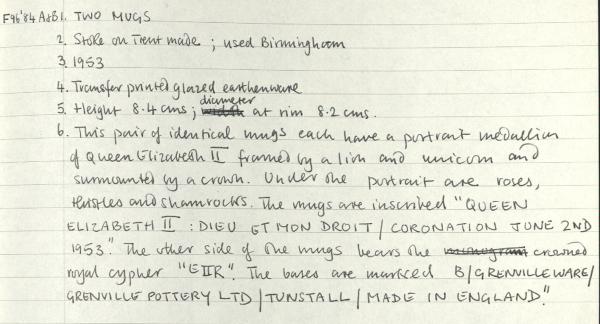 F96'84 A&B1. TWO MUGS
2. Stoke on Trent made ; used Birmingham
3. 1953
4. Transfer printed glazed earthenware
5. Height 8.4 cms ; width diameter at rim 8.2 cms.
6. This pair of identical mugs each have a portrait medallion
of Queen Elizabeth II framed by a lion and unicorn and
surmounted by a crown. Under the portrait are roses,
thistles and shamrocks. The mugs are inscribed "QUEEN
ELIZABETH II : DIEU ET MON DROIT / CORONATION JUNE 2ND
1953". The other side of the mugs bears the monogram crowned
royal cypher "EIIR". The bases are marked B/GRENVILLE WARE/
GRENVILLE POTTERY LTD / TUNSTALL / MADE IN ENGLAND."